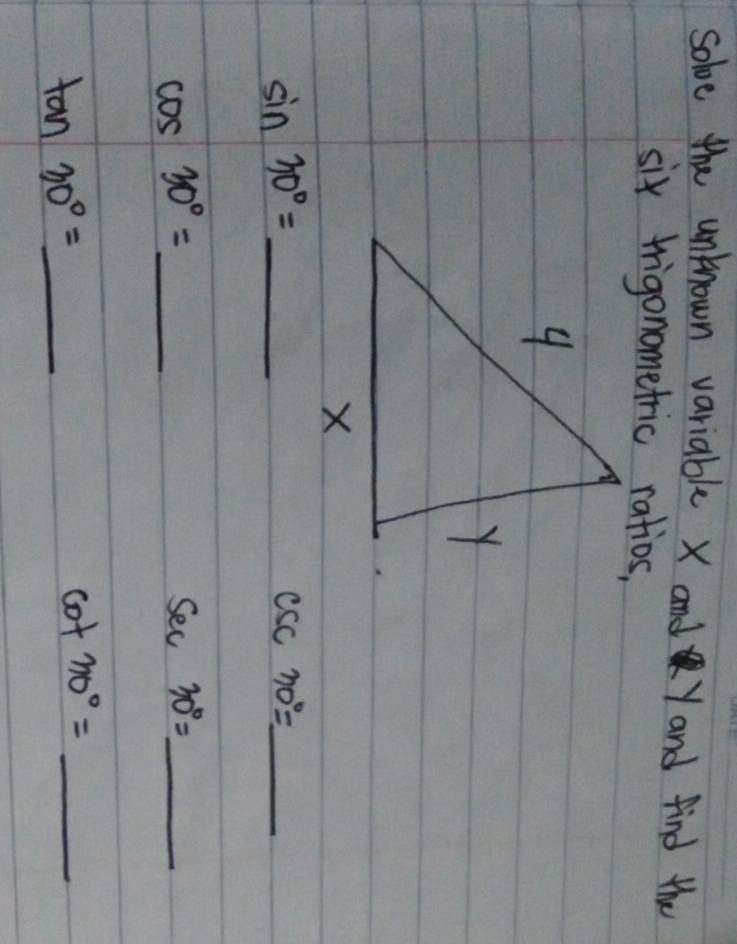 Solve the unknown variable X and Y and find the
six trigonometric ratios,
4
Y
X
sin 30° = ____ csc 30° = ____
cos 30° = ____ sec 30° = ____
tan 30° = ____ cot 30° = ____